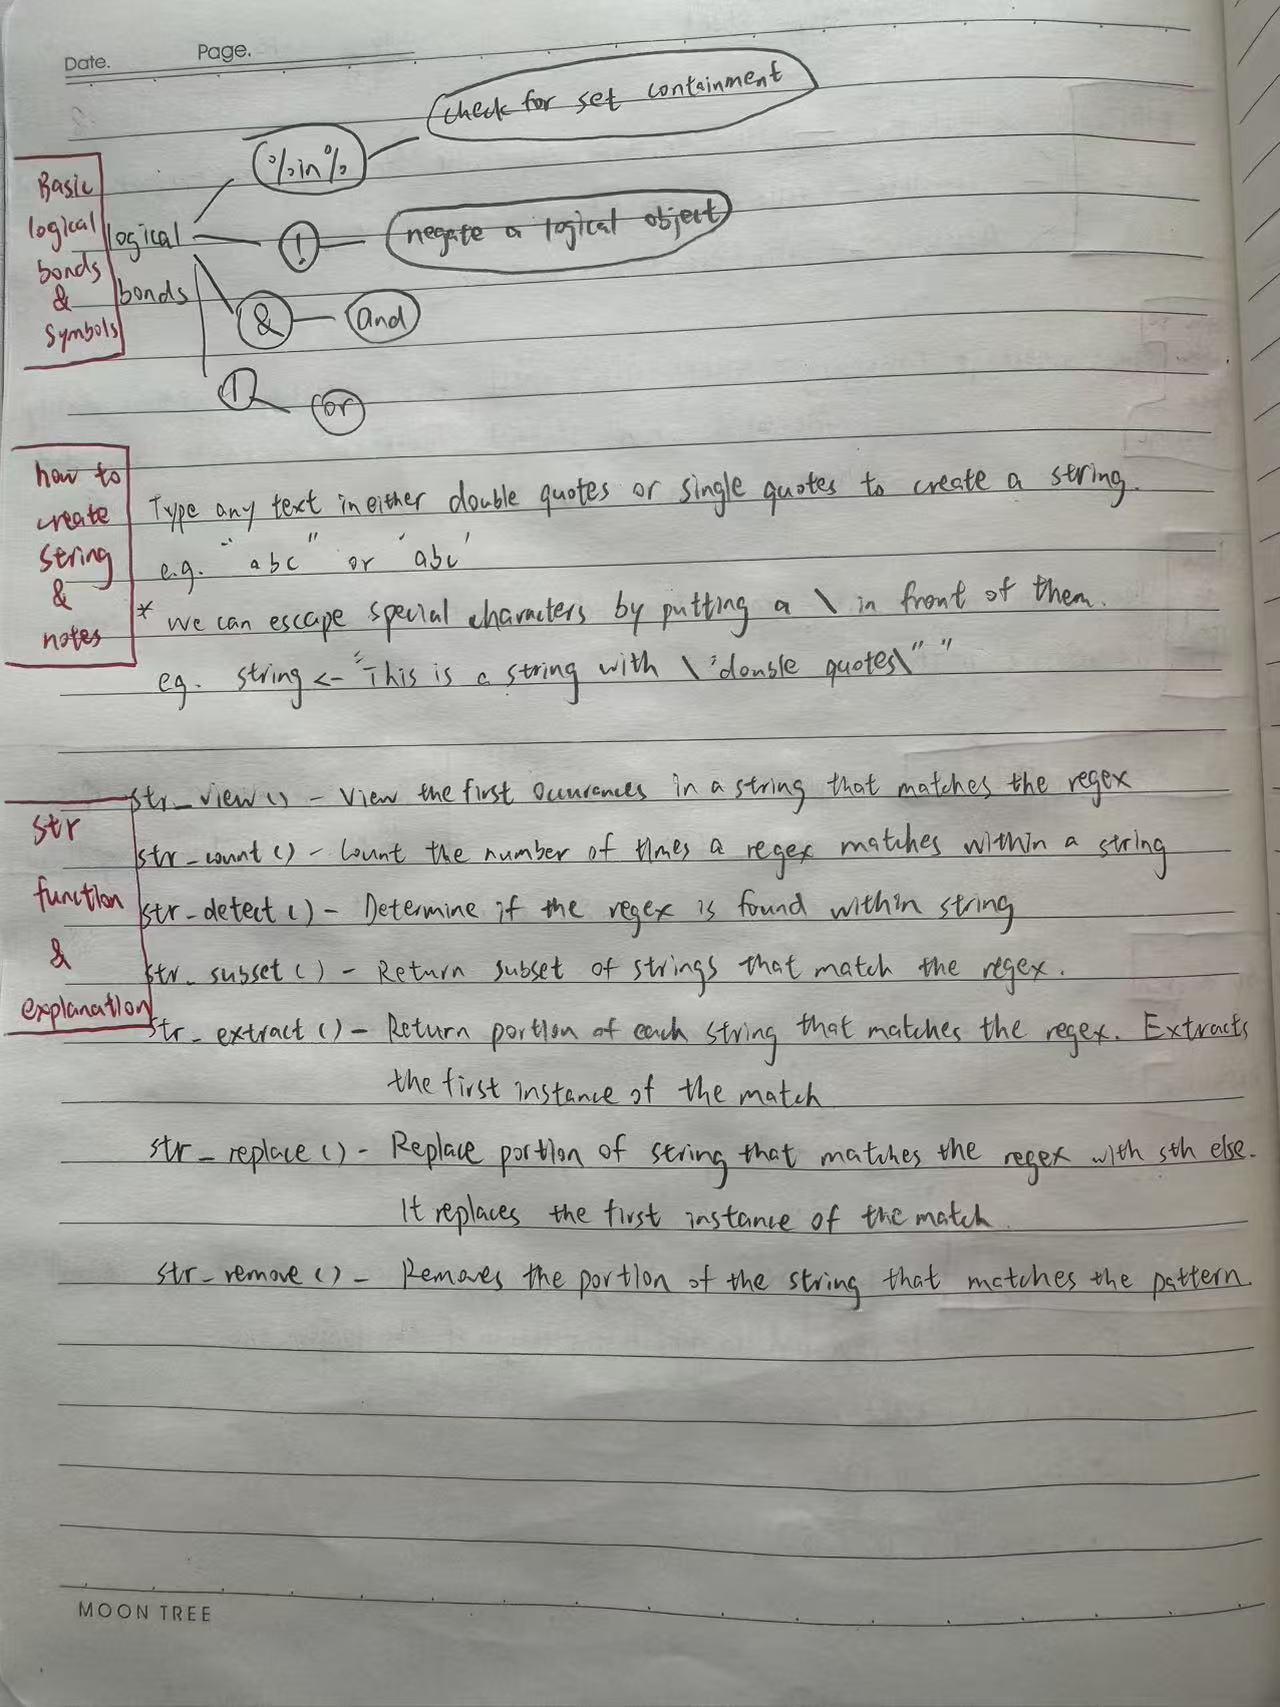 Date. Page.
check for set containment
%in%
Basic
logical
bonds
&
symbols
logical
bonds
! negate a logical object
& and
| or
how to
create
string
&
notes
Type any text in either double quotes or single quotes to create a string.
e.g. "abc" or 'abc'
* we can escape special characters by putting a \ in front of them.
eg. string <- "This is a string with \"double quotes\" "
str
function
&
explanation
str_view() - View the first occurances in a string that matches the regex
str_count() - Count the number of times a regex matches within a string
str_detect() - Determine if the regex is found within string
str_subset() - Return subset of strings that match the regex.
str_extract() - Return portion of each string that matches the regex. Extracts
the first instance of the match
str_replace() - Replace portion of string that matches the regex with sth else.
It replaces the first instance of the match.
str_remove() - Removes the portion of the string that matches the pattern.
MOON TREE